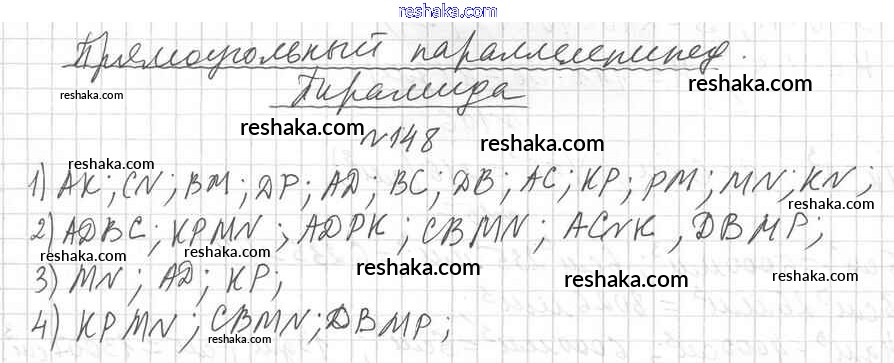 reshaka.com
Прямоугольный параллелепипед.
reshaka.com
reshaka.com
Пирамида
reshaka.com
reshaka.com
№148
reshaka.com
1) AK; CN; BM; DP; AD; BC; DB; AC; KP; PM; MN; KN;
reshaka.com
reshaka.com
2) ADBC; KPMN; ADPK; CBMN; ACNK, DBMP;
reshaka.com
reshaka.com
reshaka.com
reshaka.com
3) MN; AD; KP;
reshaka.com
4) KPMN; CBMN; DBMP;
reshaka.com